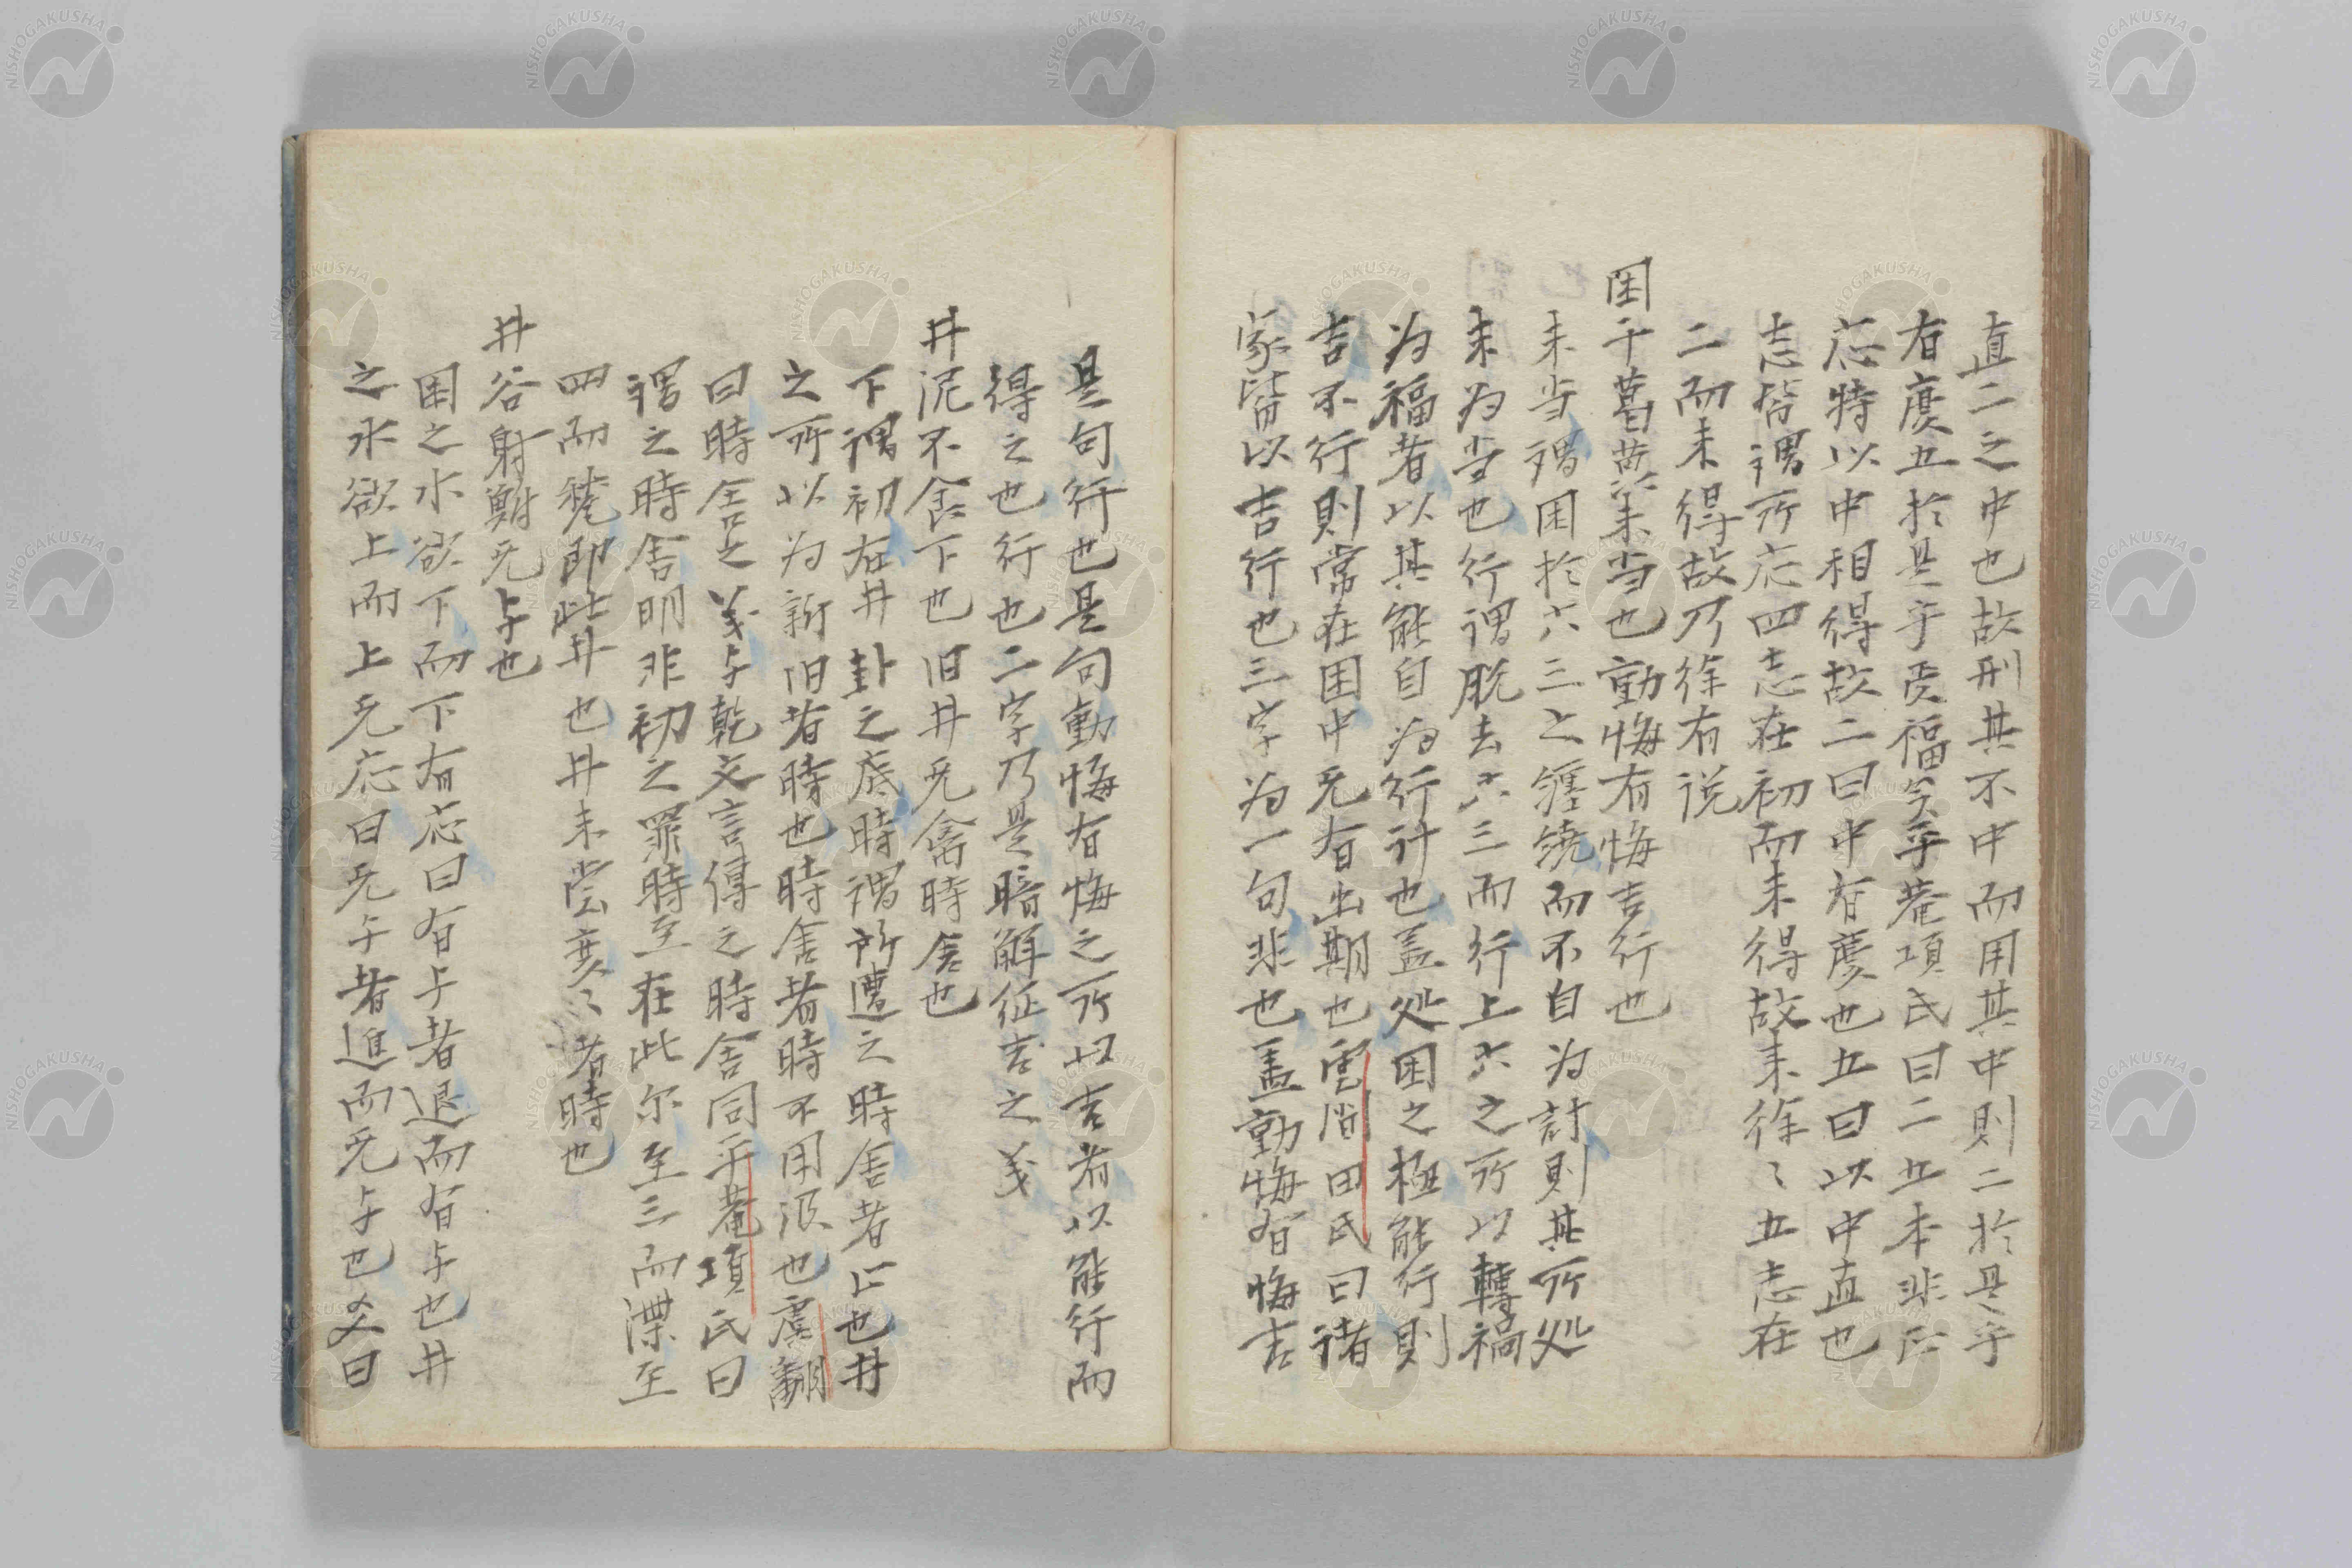 直二之中也故刑其不中而用其中則二於是乎
有慶五於是乎受福矣平菴項氏曰二五本非正
応特以中相得故二曰中有慶也五曰以中直也
志皆謂所応四志在初而未得故未徐〻五志在
二而未得故乃徐有説
困于葛藟未当也動悔有悔吉行也
未当謂困於六三之纏繞而不自為計則其所処
未為当也行謂脱去六三而行上六之所以轉禍
为福者以其能自为行計也盖処困之極能行則
吉不行則常在困中无有出期也雲間田氏曰諸
家皆以吉行也三字为一句非也盖動悔有悔吉
是句行也是句動悔有悔之所以吉者以能行而
得之也行也二字乃是暗解征吉之義
井泥不食下也旧井无禽時舍也
下謂初在井卦之底時謂所遭之時舍者止也井
之所以为新旧者時也時舍者時不用汲也虞翻
曰時舍之義与乾文言傳之時舍同平菴項氏曰
謂之時舍明非初之罪時至在此尓至三而渫至
四而甃即此井也井未嘗変〻者時也
井谷射鮒无与也
困之水欲下而下有応曰有与者退而有与也井
之水欲上而上无応曰无与者進而无与也爻曰
NISHOGAKUSHA